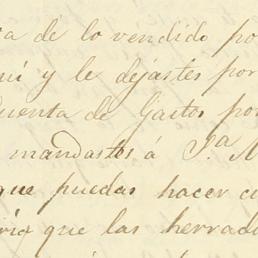 a de lo vendido po
uí y le dejastes por
uenta de Gastos por
mandastes á J.ª
que puedas hacer cu
rio que las herrad